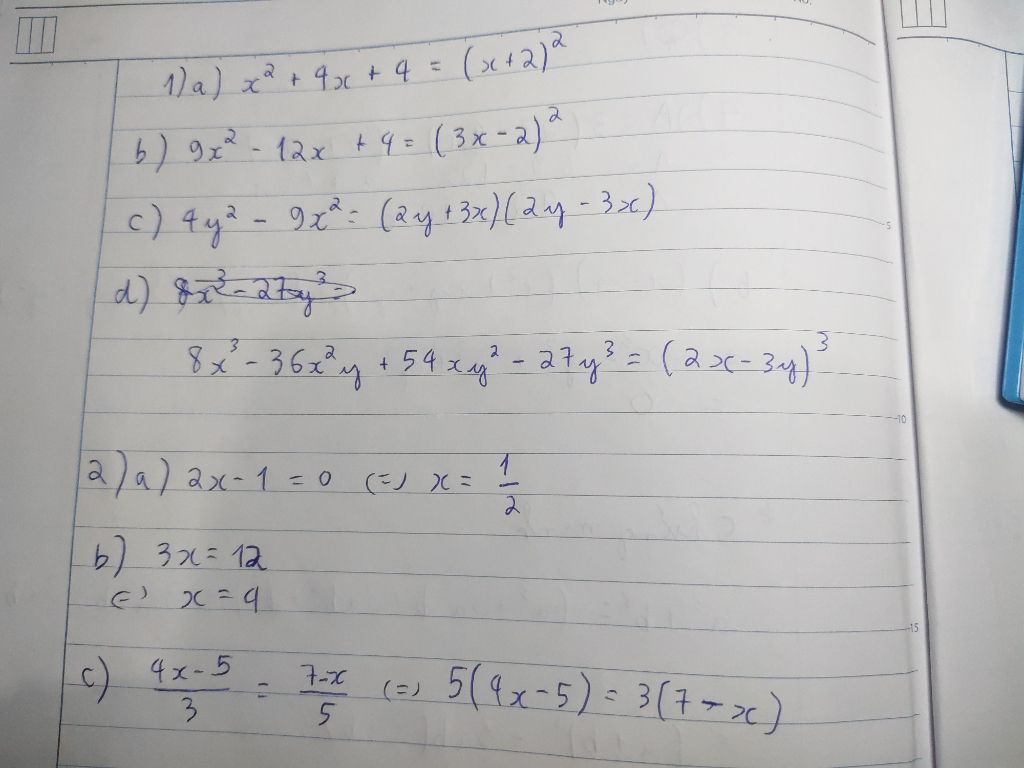 1) a) x² + 4x + 4 = (x+2)²
b) 9x² - 12x + 4 = (3x - 2)²
c) 4y² - 9x² = (2y + 3x)(2y - 3x)
d) 8x³ - 27y³ =
8x³ - 36x²y + 54xy² - 27y³ = (2x - 3y)³
10
2) a) 2x - 1 = 0 (=) x = 1/2
b) 3x = 12
(=) x = 4
15
c) (4x - 5)/3 = (7-x)/5 (=) 5(4x - 5) = 3(7 - x)